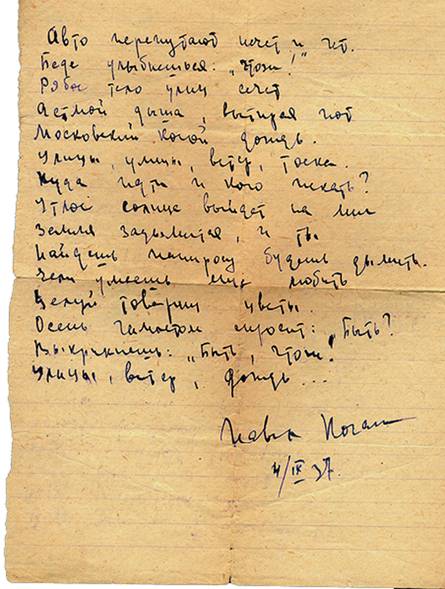 Авто перепутают нечет и чет.
Беде улыбнешься: „Что ж!"
Рябое тело улиц сечет
Астмой дыша, вытирая пот
Московский косой дождь.
Улицы, улицы, ветер, тоска.
Куда идти и кого искать?
Утлое солнце выйдет на миг
Земля задымится, и ты
Найдешь папиросу будешь дымить.
умеешь любить
Целуй товарищ цветы.
Осень спросит: „Быть?
Выкрикнешь: „Быть, что ж!"
Улицы, ветер, дождь...
Павел Коган
4/IX 37.